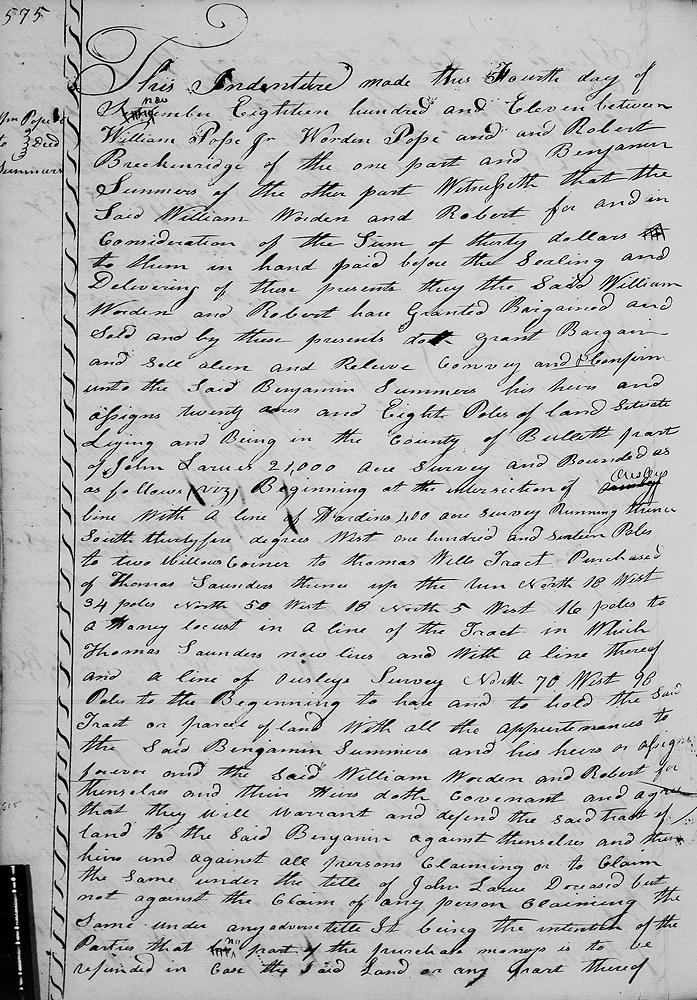 575
Wm Pope &c
to } Deed
Summers
This Indenture made this Fourth day of
November Eighteen hundred and Eleven between
William Pope Jr Worden Pope and and Robert
Breckenridge of the one part and Benjamin
Summers of the other part Witnesseth that the
Said William Worden and Robert for and in
Consideration of the Sum of thirty dollars
to them in hand paid before the Sealing and
Delivering of these presents they the Said William
Worden and Robert have Granted Bargained and
Sold and by these presents doth grant Bargain
and Sell alien and Release Convey and Confirm
unto the Said Benjamin Summers his heirs and
assigns twenty acres and Eight Poles of land Situate
Lying and Being in the County of Bullitt part
of John Larues 21,000 acre Survey and Bounded as
as follows, (viz) Beginning at the intersection of Ousley
line With a line of Hardins 400 acre Survey Running thence
South thirty five degrees West one hundred and sixteen Poles
to two Willows Corner to thomas Wells Tract Purchased
of Thomas Saunders thence up the run North 18 West
34 poles North 50 West 18 North 5 West 16 poles to
a Haney locust in a line of the Tract in Which
Thomas Saunders now lives and With a line thereof
and a line of Ousleys Survey North 70 West 98
Poles to the Beginning to have and to hold the Said
Tract or parcel of land With all the appurtenances to
the Said Bengamin Summers and his heirs or assigns
forever and the Said William Worden and Robert for
themselves and their Heirs doth Covenant and agree
that they Will Warrant and defend the said tract of
land to the Said Benjamin against themselves and their
heirs and against all persons Claiming or to Claim
the Same under the title of John Larue Deceased but
not against the Claim of any person Claiming the
Same under any adverse title It being the intention of the
Parties that no part of the purchase moneys is to be
refunded in Case the Said Land or any part thereof
515